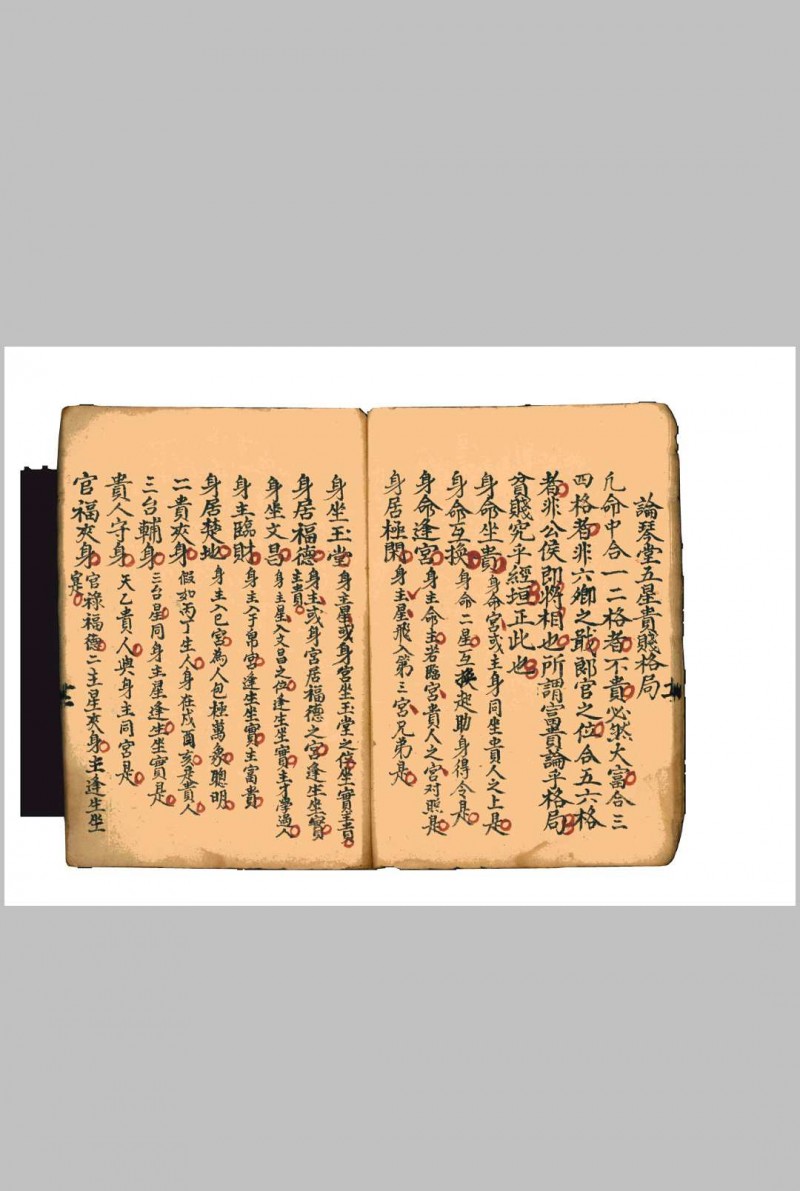 論琴堂五星貴賤格局
凢命中合一二格者不貴必然大富合三
四格者非六卿之戢郎官之位合五六格
者非公侯即將相也所謂富貴論乎格局
貧賤究乎經垣正此也
身命坐貴 身命宮或主身同坐貴人之上是
身命互換 身命二星互換起助身得令是
身命逢宮 身主命主若臨宮貴人之宮对照是
身居極閑 身主星飛入第三宮兄弟是
身坐玉堂 身主星或身宮坐玉堂之位坐實主貴
身居福德 身主或身宮居福德之宮逢生坐實主貴
身坐文昌 身主星入文昌之位逢生坐實主才學過人
身主臨財 身主入于帛宮逢生坐實主富貴
身居楚地 身主入巳宮為人包極萬象聰明
二貴夾身 假如丙丁生人身在戌酉亥是貴人
三台輔身 三台星同身主星逢生坐實是
貴人守身 天乙貴人與身主同宮是
官福夾身 官祿福德二主星夾身主逢生坐實是